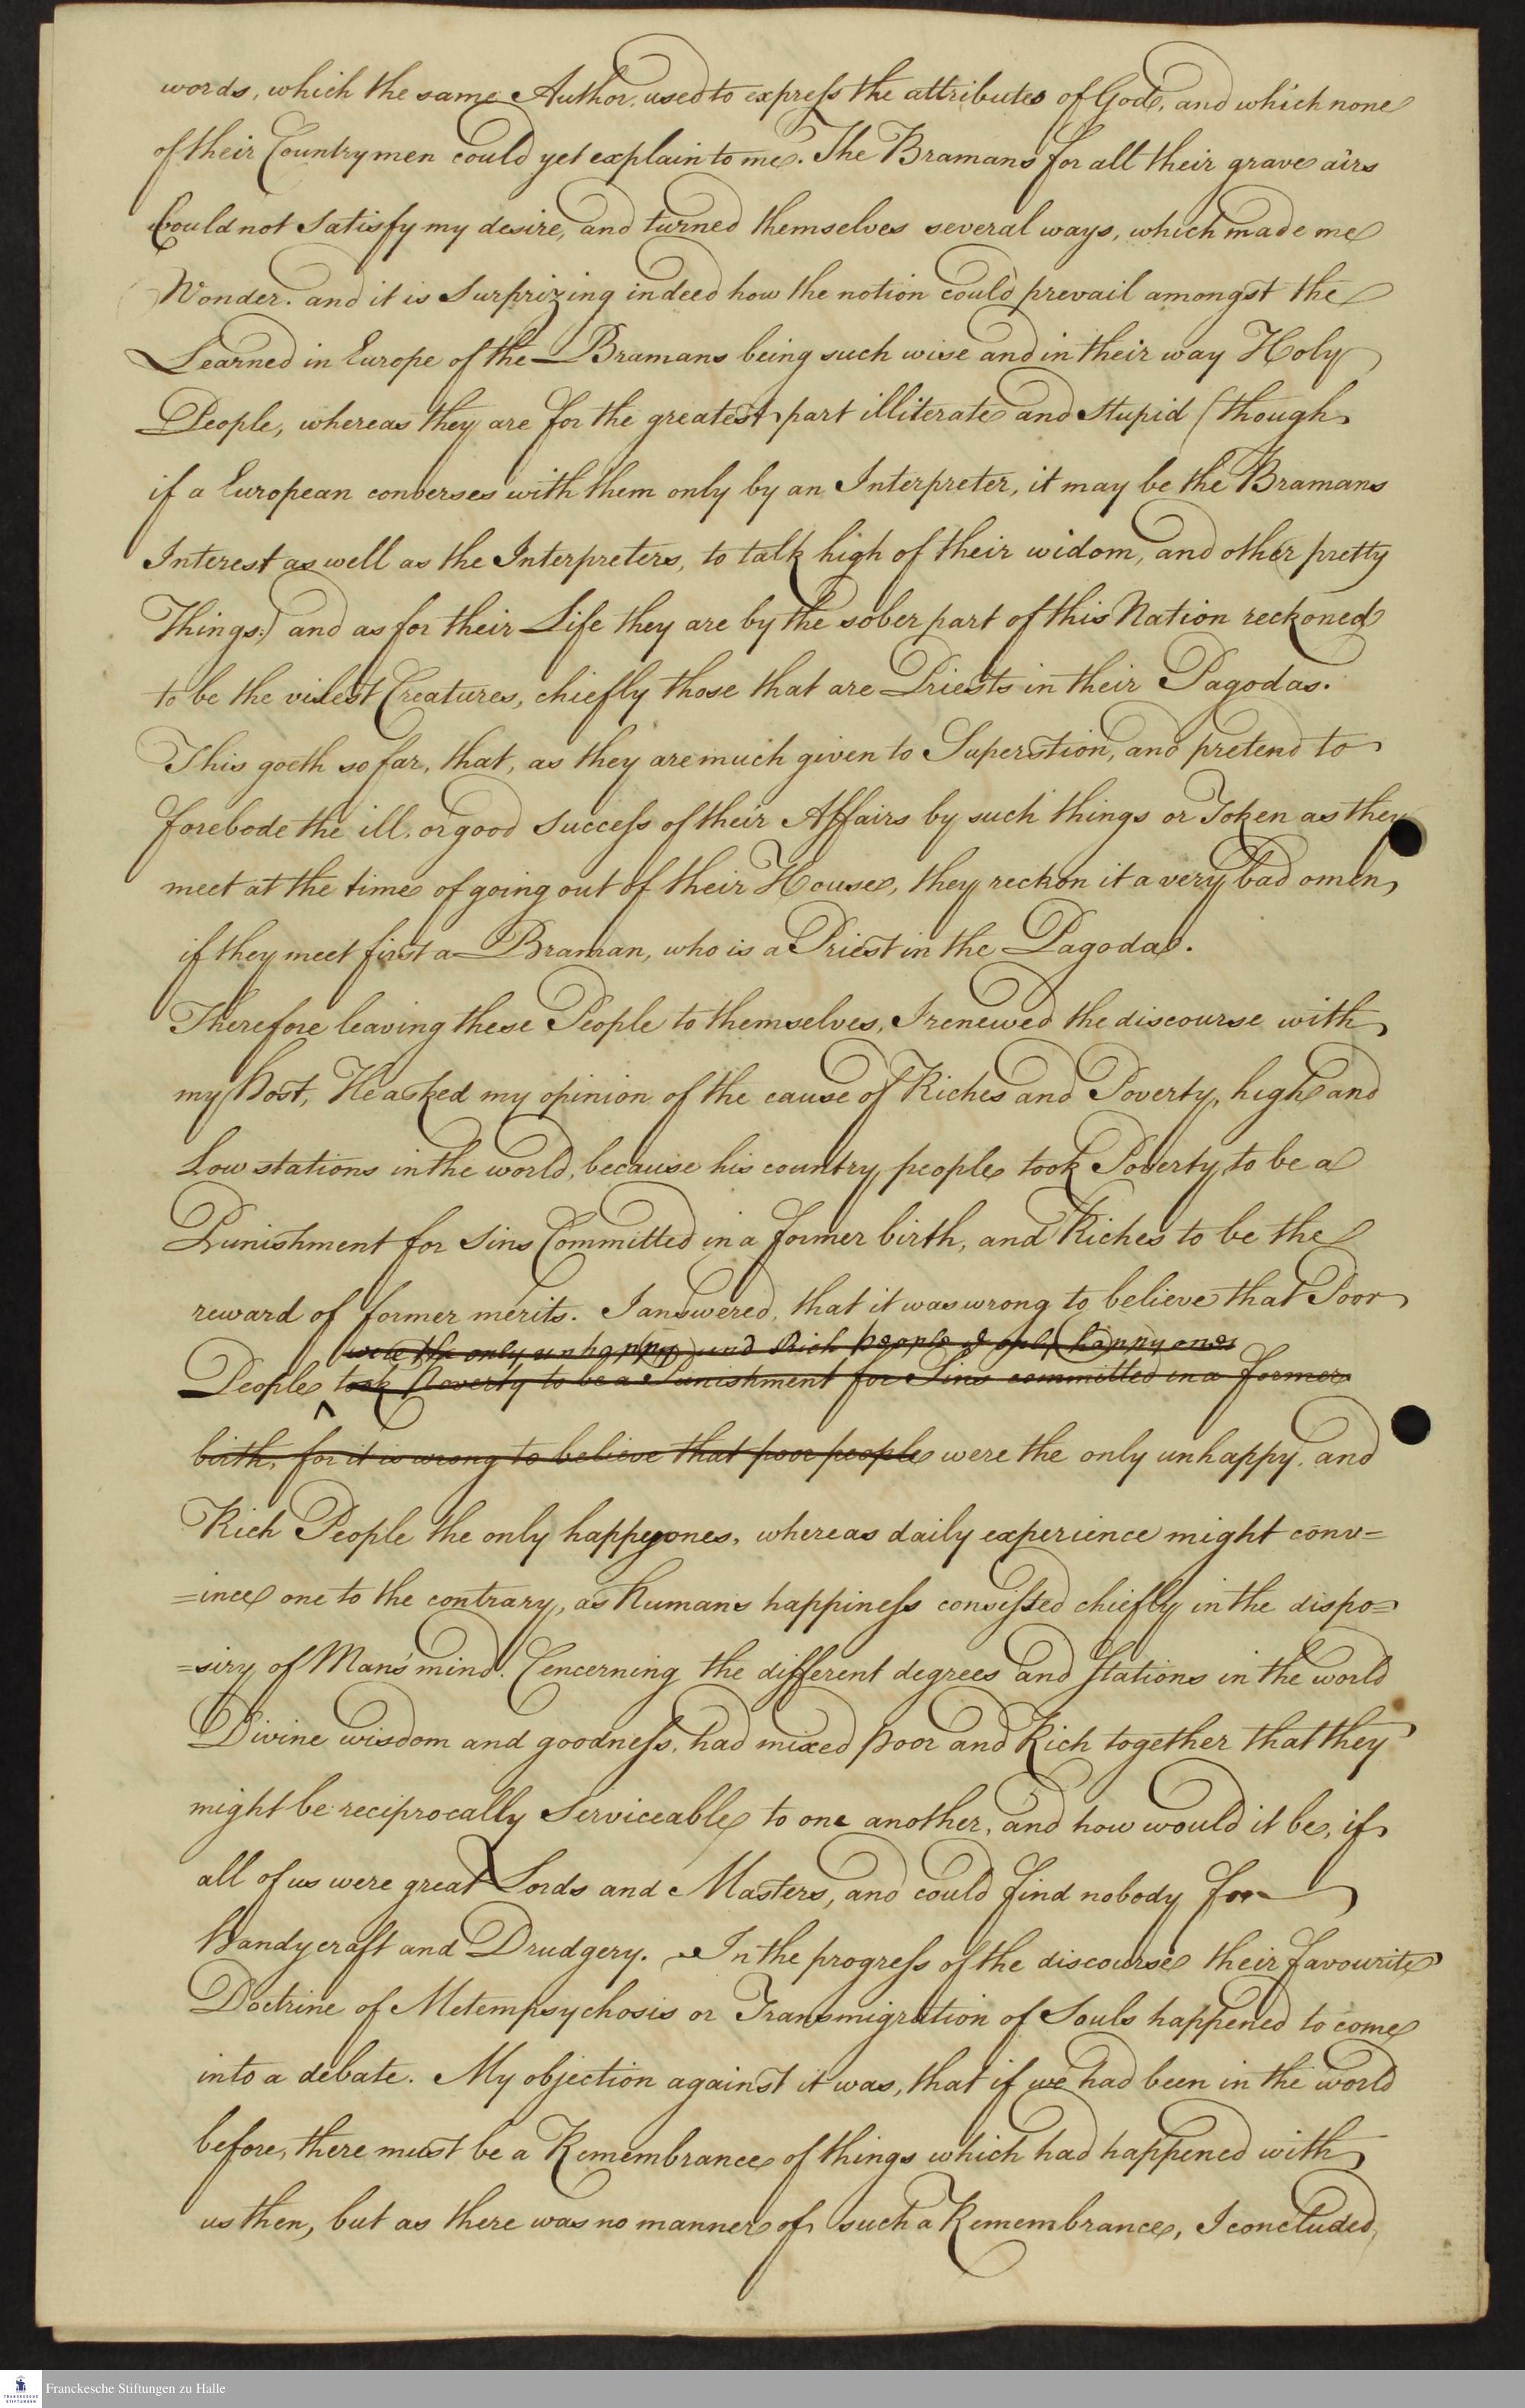 words, which the same Author, used to expreſs the attributes of God, and which none
of their Countrymen could yet explain to me. The Bramans for all their grave airs
Could not satisfy my desire, and turned themselves several ways, which made me
Wonder. and it is Surprizing indeed how the notion could prevail amongst the
Learned in Europe of the Bramans being such wise and in their way Holy
People, whereas they are for the greatest part illiterate and Stupid (though
if a European converses with them only by an Interpreter, it may be the Bramans
Interest as well as the Interpreters, to talk high of their widom, and other pretty
Things:) and as for their Life they are by the sober part of this Nation reckoned
to be the vilest Creatures, chiefly those that are Priests in their Pagodas.
This goeth so far, that, as they are much given to Superstion, and pretend to
forebode the ill, or good Succeſs of their Affairs by such things or Token as they
meet at the time of going out of their House, they reckon it a very bad omen,
if they meet first a Braman, who is a Priest in the Pagoda.
Therefore leaving these People to themselves, I renewed the discourse with
my Host, He asked my opinion of the cause of Riches and Poverty, high and
Low stations in the world, because his country people took Poverty to be a
Punishment for Sins Committed in a former birth, and Riches to be the
reward of former merits. I answered, that it was wrong to believe that Poor
were the only unhappy and Rich people only happy ones
People took Poverty to be a Punishment for Sins committed in a former
birth, for it is wrong to believe that poor people were the only unhappy, and
Rich People the only happy ones, whereas daily experience might conv=
=ince one to the contrary, as Humans happineſs consiſted chiefly in the dispo=
=siry of Man's mind. Cencerning the different degrees and Stations in the world
Divine wisdom and goodneſs, had mixed poor and Rich together that they
might be reciprocally Serviceable to one another, and how would it be, if
all of us were great Lords and Masters, and could find nobody for
Handycraft and Drudgery. In the progreſs of the discourse their favourite
Doctrine of Metempsychosis or Transmigration of Souls happened to come
into a debate. My objection against it was, that if we had been in the world
before, there must be a Remembrance of things which had happened with
us then, but as there was no manner of such a Remembrance, I concluded,
Franckesche Stiftungen zu Halle